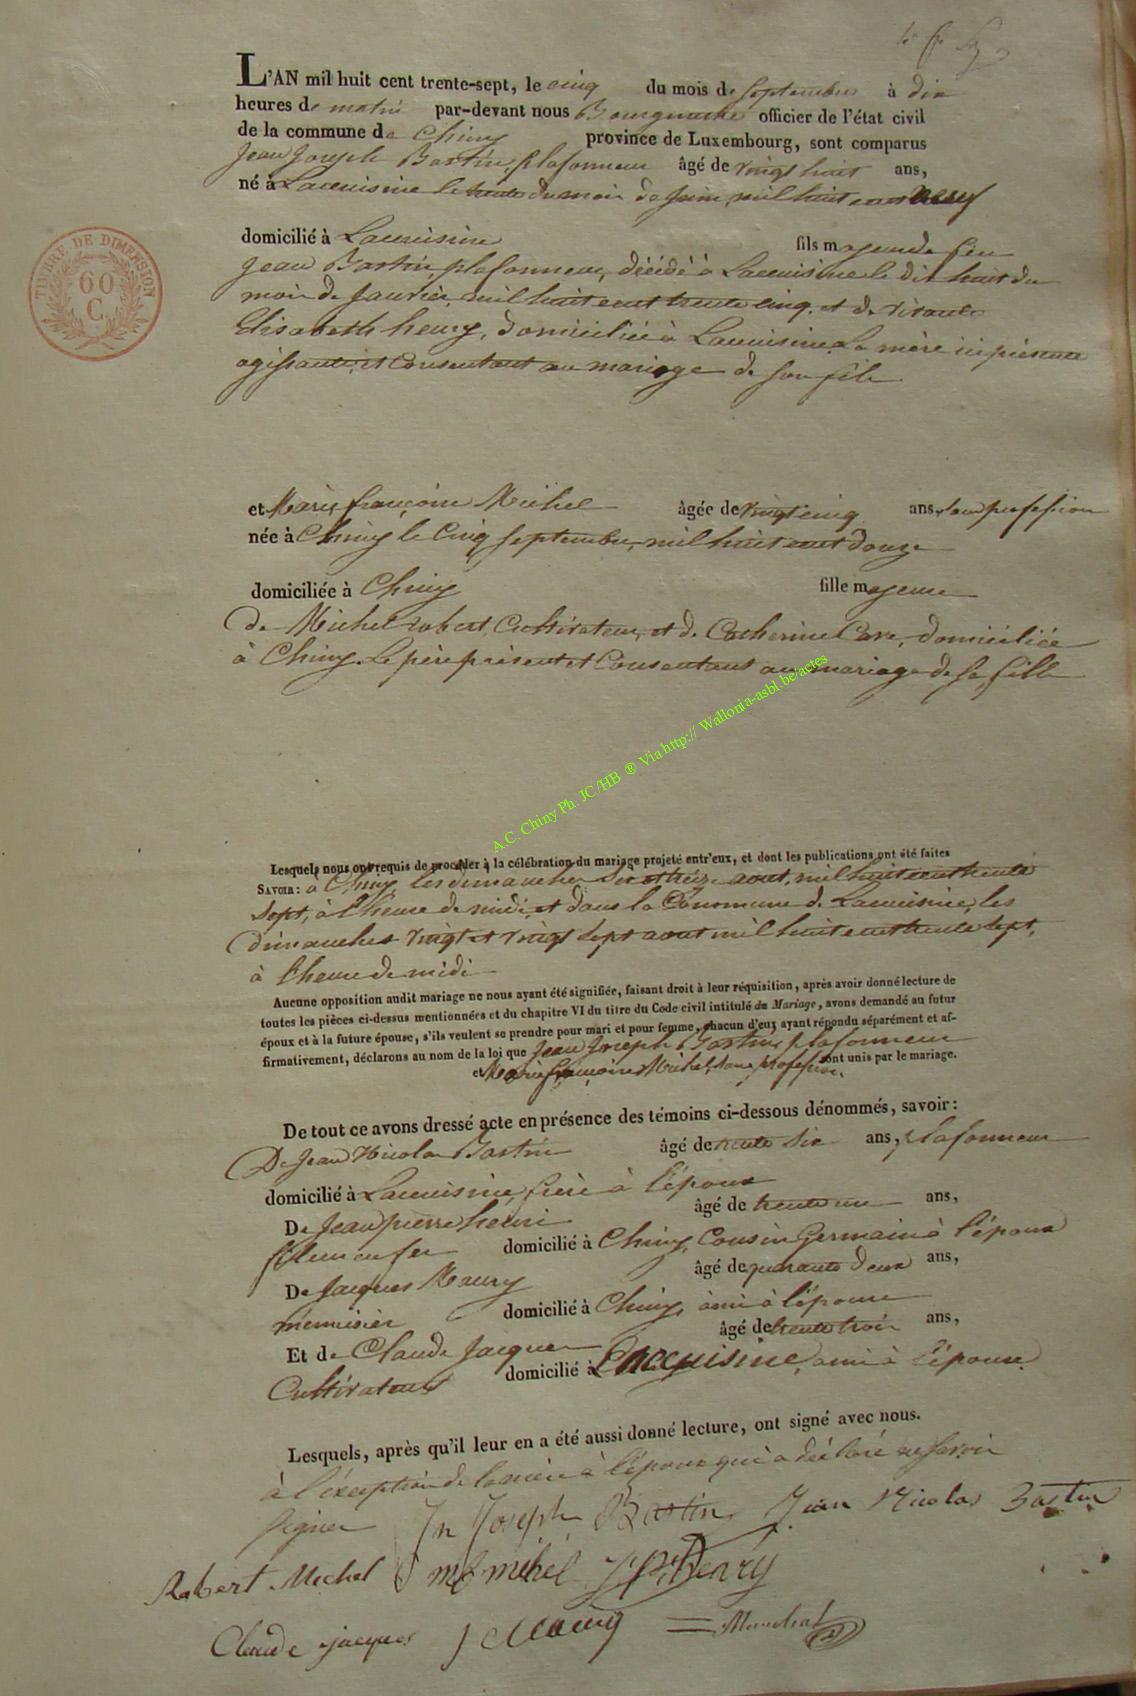 L'AN mil huit cent trente-sept, le cinq du mois de septembre à dix
heures de matin par-devant nous Bourguemetre officier de l'état civil
de la commune de Chiny province de Luxembourg, sont comparus
Jean Joseph Bastin, plafonneur âgé de vingt huit ans,
né à Lacuisine le trente du mois de Juin mil huit cent neuf
TIMBRE DE DIMENSION
60
C.
domicilié à Lacuisine fils majeur de feu
Jean Bastin plafonneur, décédé à Lacuisine le dix huit du
mois de Janvier mil huit cent trente cinq. et de vivante
Elisabeth henry, domiciliée à Lacuisine. La mère ici présente
agissante, et Consentant au mariage de son fils
et Marie françoise Michel âgée de vingt cinq ans, sans profession
née à Chiny le Cinq septembre, mil huit cent douze
domiciliée à Chiny fille majeure
De Michel robert, Cultivateur, et de Catherine domiciliée
à Chiny. Le père présent et Consentant au mariage de sa fille
A.C. Chiny Ph. JC/HB ® Via http:// Wallonia-asbl.be/actes
Lesquels nous ont requis de procéder à la célébration du mariage projeté entr'eux, et dont les publications ont été faites
SAVOIR : à Chiny, les dimanches Six et treize aout, mil huit cent trente
Sept, à l'heure de midi, et dans la Commune de Lacuisine, les
dimanches vingt et vingt sept aout mil huit cent trente sept,
à l'heure de midi
Aucune opposition audit mariage ne nous ayant été signifiée, faisant droit à leur réquisition, après avoir donné lecture de
toutes les pièces ci-dessus mentionnées et du chapitre VI du titre du Code civil intitulé du Mariage, avons demandé au futur
époux et à la future épouse, s'ils veulent se prendre pour mari et pour femme, chacun d'eux ayant répondu séparément et af-
firmativement, déclarons au nom de la loi que Jean Joseph Bastin, plafonneur
et Marie françoise Michel, sans profession, sont unis par le mariage.
De tout ce avons dressé acte en présence des témoins ci-dessous dénommés, savoir :
De Jean Nicolas Bastin âgé de trente six ans, plafonneur
domicilié à Lacuisine, frère à l'époux
De Jean pierre henri âgé de trente un ans,
fileur en fer domicilié à Chiny, Cousin Germain à l'époux
De Jacques Maury âgé de quarante deux ans,
menuisier domicilié à Chiny, ami à l'épouse
Et de Claude Jacques âgé de trente trois ans,
Cultivateur domicilié à Lacuisine, ami à l'épouse.
Lesquels, après qu'il leur en a été aussi donné lecture, ont signé avec nous.
à l'éxception de la mère à l'époux qui à déclaré ne savoir
signer Jn Joseph Bastin Jean Nicolas Bastin
Robert Michel mf mihel JP henry
Claude jacques J Maury